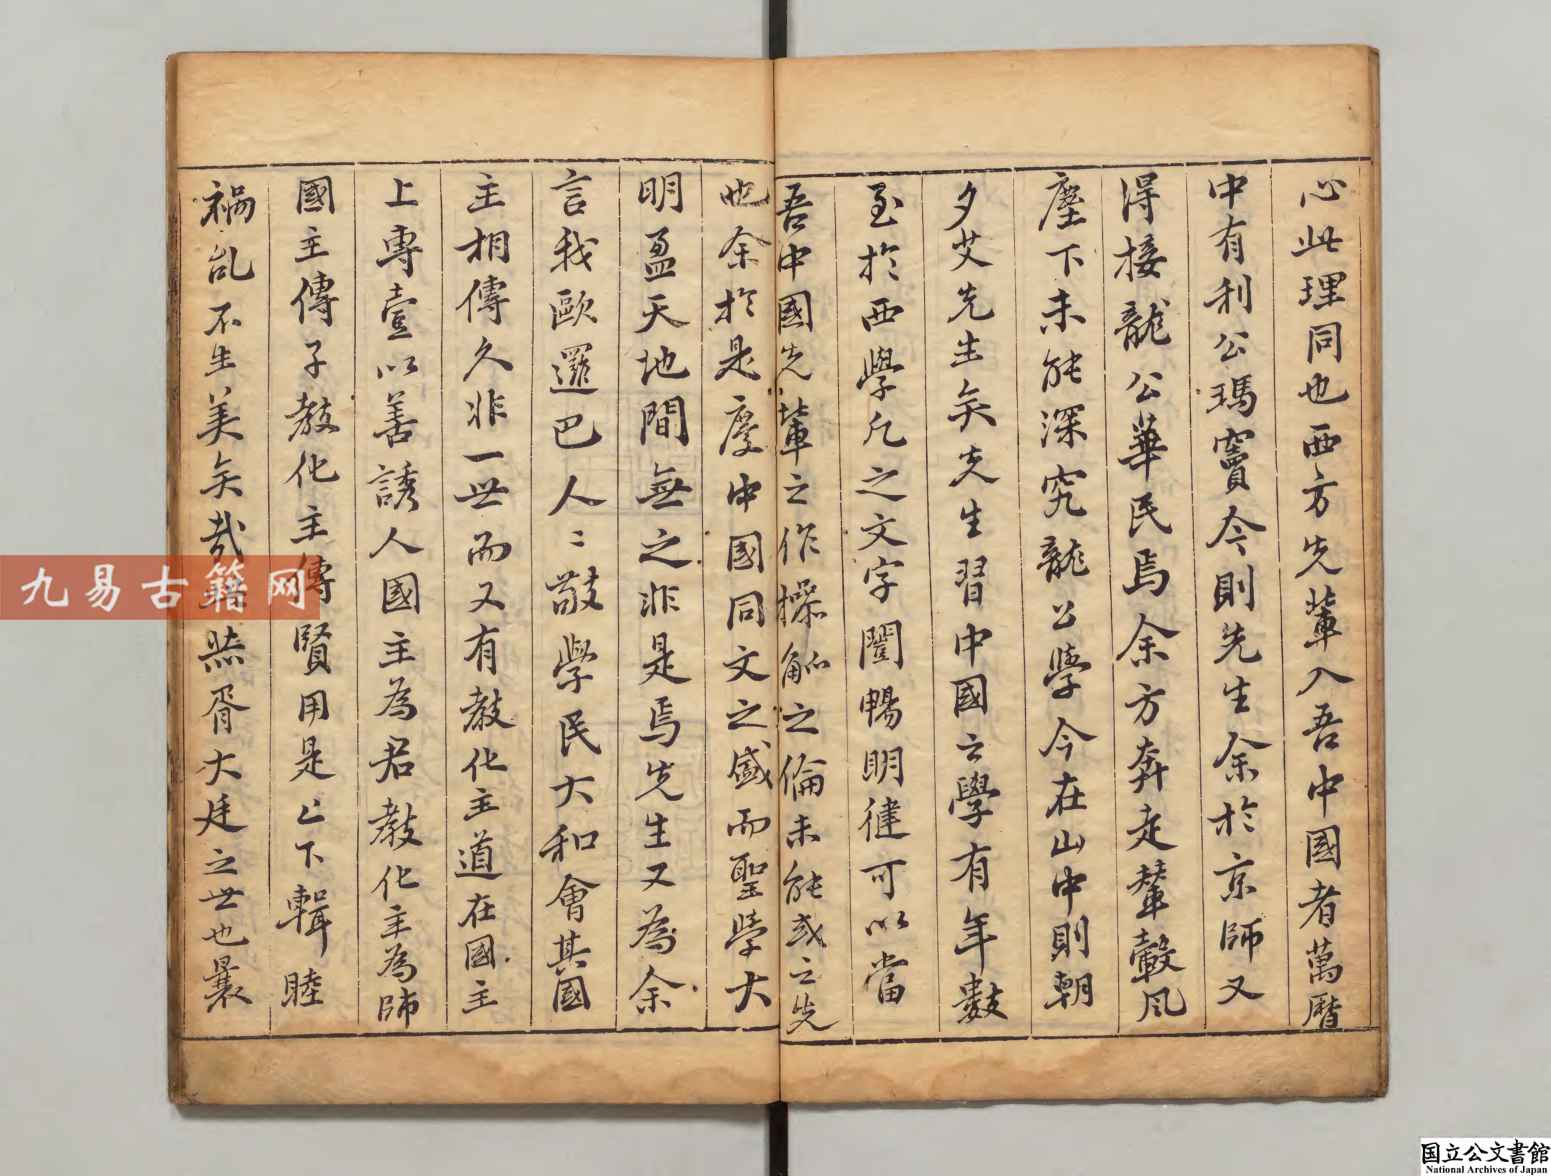 心此理同也西方先輩入吾中國者萬曆
中有利公瑪竇今則先生余於京師又
得接龍公華民焉余方奔走輦轂風
塵下未能深究龍公學今在山中則朝
夕艾先生矣先生習中國之學有年數
至於西學凡之文字闓暢明健可以當
吾中國先輩之作操觚之倫未能或之先
也余於是慶中國同文之盛而聖學大
明盈天地間無之非是焉先生又為余
言我歐邏巴人〻敬學民大和會其國
主相傳久非一世而又有教化主道在國主
上專壹以善誘人國主為君教化主為師
國主傳子教化主傳賢用是上下輯睦
禍乱不生美矣哉 熈胥大廷之世也曩
九易古籍网
国立公文書館
National Archives of Japan